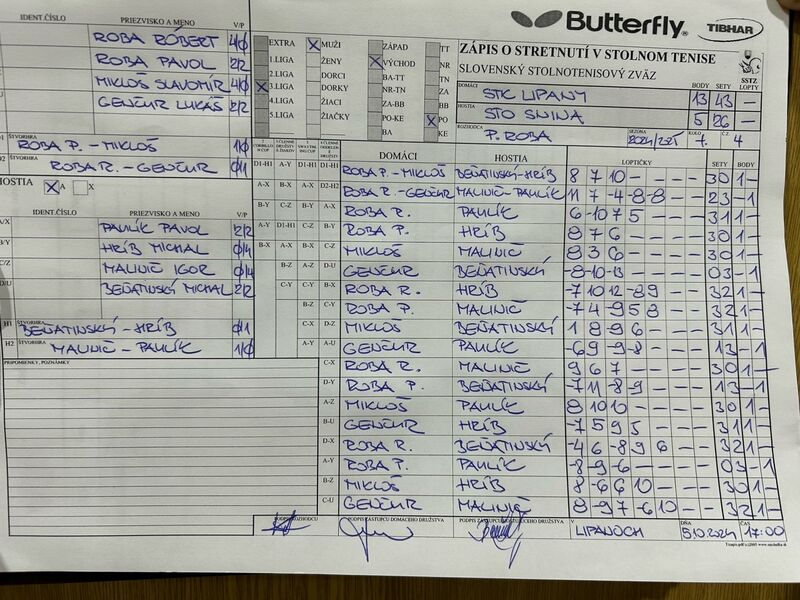 Butterfly TIBHAR
ZÁPIS O STRETNUTÍ V STOLNOM TENISE
SLOVENSKÝ STOLNOTENISOVÝ ZVÄZ
SSTZ
DOMÁCI STK LIPANY BODY 13 SETY 43 LOPTY —
HOSTIA STO SNINA 5 26 —
ROZHODCA P. ROBA SEZÓNA 2024/2025 KOLO 7. Č.Z. 4
IDENT.ČÍSLO PRIEZVISKO A MENO V/P
ROBA RÓBERT 4/0
ROBA PAVOL 2/2
MIKLOŠ SLAVOMÍR 4/0
GENČUR LUKÁŠ 2/2
ŠTVORHRA ROBA P. - MIKLOŠ 1/0
ŠTVORHRA ROBA R. - GENČUR 0/1
HOSTIA X A X
IDENT.ČÍSLO PRIEZVISKO A MENO V/P
A/X PAULÍK PAVOL 2/2
B/Y HRÍB MICHAL 0/4
C/Z MALINIČ IGOR 0/4
D/U BEŇATINSKÝ MICHAL 2/2
H1 ŠTVORHRA BEŇATINSKÝ - HRÍB 0/1
H2 ŠTVORHRA MALINIČ - PAULÍK 1/0
PRIPOMIENKY, POZNÁMKY
EXTRA X MUŽI ZÁPAD TT
1.LIGA ŽENY X VÝCHOD NR
2.LIGA DORCI BA-TT TN
X 3.LIGA DORKY NR-TN ZA
4.LIGA ŽIACI ZA-BB BB
5.LIGA ŽIAČKY PO-KE X PO
BA KE
DOMÁCI HOSTIA LOPTIČKY SETY BODY
D1-H1 A-Y D1-H1 D1-H1 ROBA P. - MIKLOŠ BEŇATINSKÝ-HRÍB 8 7 10 — — — — 3 0 1 —
A-X B-X A-X D2-H2 ROBA R. - GENČUR MALINIČ-PAULÍK 11 7 -4 -8 -8 — — 2 3 — 1
B-Y C-Z B-Y A-X ROBA R. PAULÍK 6 -10 7 5 — — — 3 1 1 —
A-Y D1-H1 C-Z B-Y ROBA P. HRÍB 8 7 6 — — — — 3 0 1 —
B-X A-X B-X C-Z MIKLOŠ MALINIČ 8 3 6 — — — — 3 0 1 —
B-Z A-Z D-U GENČUR BEŇATINSKÝ -8 -10 -13 — — — — 0 3 — 1
C-Y C-Y B-X ROBA R. HRÍB -7 10 12 -8 9 — — 3 2 1 —
B-Z C-Y ROBA P. MALINIČ -7 4 -9 5 8 — — 3 2 1 —
C-X D-Z MIKLOŠ BEŇATINSKÝ 1 8 -9 6 — — — 3 1 1 —
A-Y A-U GENČUR PAULÍK -6 9 -9 -8 — — — 1 3 — 1
C-X ROBA R. MALINIČ 9 6 7 — — — — 3 0 1 —
D-Y ROBA P. BEŇATINSKÝ -7 11 -8 -9 — — — 1 3 — 1
A-Z MIKLOŠ PAULÍK 8 10 10 — — — — 3 0 1 —
B-U GENČUR HRÍB -7 5 9 5 — — — 3 1 1 —
D-X ROBA R. BEŇATINSKÝ -4 6 -8 9 6 — — 3 2 1 —
A-Y ROBA P. PAULÍK -8 -9 -6 — — — — 0 3 — 1
B-Z MIKLOŠ HRÍB 8 6 10 — — — — 3 0 1 —
C-U GENČUR MALINIČ 8 -9 7 -6 10 — — 3 2 1 —
PODPIS ROZHODCU PODPIS ZÁSTUPCU DOMÁCEHO DRUŽSTVA PODPIS ZÁSTUPCU HOSŤUJÚCEHO DRUŽSTVA V LIPANOCH DŇA 5.10.2024 ČAS 17:00